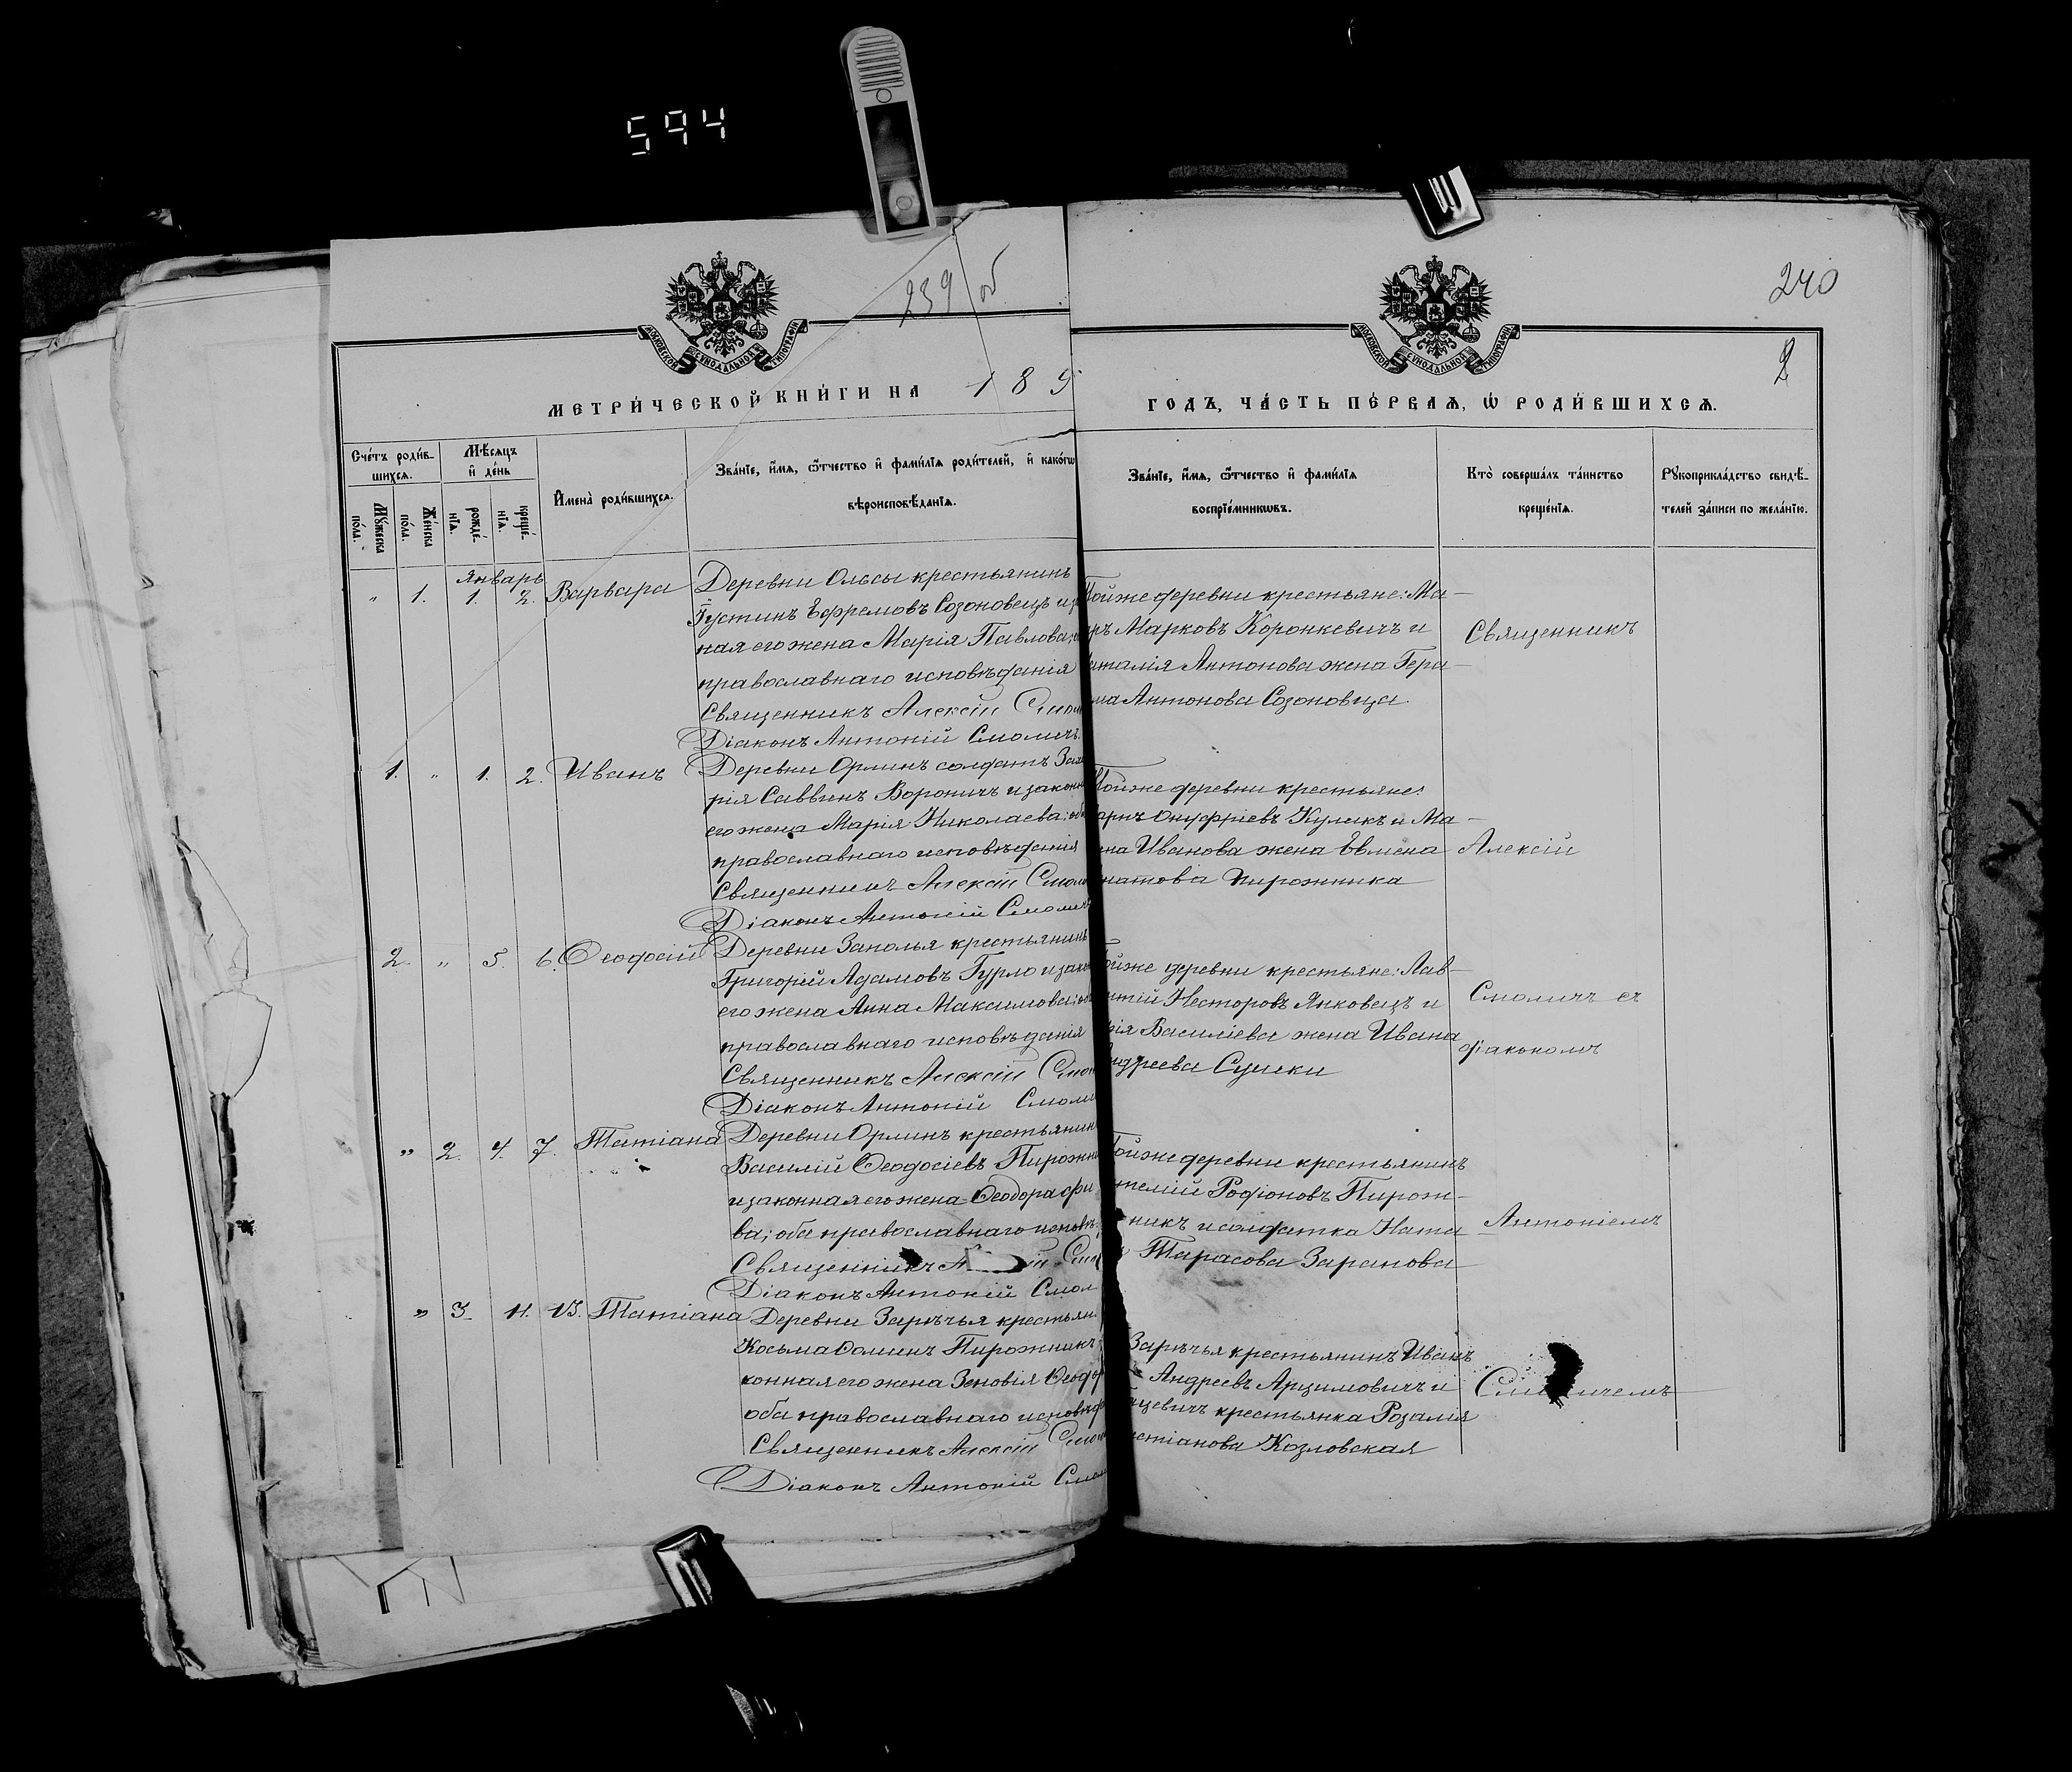 594
239 об
240
2
МОСКОВСКОЙ СУНОДАЛЬНОЙ ТИПОГРАФІИ
МОСКОВСКОЙ СУНОДАЛЬНОЙ ТИПОГРАФІИ
МЕТРИ́ЧЕСКОЙ КНИ́ГИ НА 189
ГОДЪ, ЧА́СТЬ ПЕ́РВАѦ, Ѡ҆ РОДИ́ВШИХСѦ.
Сче́тъ роди́в-
шихсѧ.
Мꙋ́жеска по́ла.
Же́нска по́ла.
Мѣ́сѧцъ
и҆ де́нь
рожде́-нїѧ.
креще́-нїѧ.
И҆мена̀ роди́вшихсѧ.
Зва́нїе, и҆́мѧ, ѻ҆́тчество и҆ фами́лїѧ роди́телей, и҆ како́гѡ
вѣроисповѣ́данїѧ.
Зва́нїе, и҆́мѧ, ѻ҆́тчество и҆ фами́лїѧ
воспрїе́мникѡвъ.
Кто̀ соверша́лъ та́инство
креще́нїѧ.
Рꙋкоприкла́дство свидѣ́-
телей за́писи по жела́нїю.
Январь
„ 1. 1. 2. Варвара
Деревни Ольсы крестьянинъ
Густинъ Ефремовъ Созоновецъ и за
ная его жена Марія Павлова;
православнаго исповѣданія
Священникъ Алексій Смол
Діаконъ Антоній Смоличъ.
Той же деревни крестьяне: Ма-
аръ Марковъ Коронкевичъ и
аталія Антонова жена Гера-
ма Антонова Созоновца.
Священникъ
1. „ 1. 2. Иванъ
Деревни Орлинъ солдатъ Заха
рія Саввинъ Вороничъ и законн
его жена Марія Николаева; об
православнаго исповѣданія
Священникъ Алексій Смол
Діаконъ Антоній Смолич
Той же деревни крестьяне:
арпъ Онуфріевъ Куликъ и Ма-
на Иванова жена Евмена
натова Пирожника
Алексій
2. „ 5. 6. Ѳеодосій
Деревни Заполья крестьянинъ
Григорій Адамовъ Гурло и закон
его жена Анна Максимова; об
православнаго исповѣданія
Священникъ Алексій Смол
Діаконъ Антоній Смоли
ойже деревни крестьяне: Лав-
нтій Несторовъ Янковецъ и
рія Василіева жена Ивана
ндреева Сушки
Смоличъ съ
діакономъ
„ 2. 4. 7. Татіана
Деревни Орлинъ крестьянин
Василій Ѳеодосіевъ Пирожни
и законная его жена Ѳеодора
ва; оба православнаго исповѣ
Священникъ А ій Смо
Діаконъ Антоній Смол
Той же деревни крестьянинъ
телій Родіоновъ Пирож-
никъ и солдатка Ната-
Тарасова Заранова
Антоніемъ
„ 3. 11. 13. Татіана
Деревни Зарѣчья крестьян
Косьма Ѳоминъ Пирожникъ
конная его жена Зеновія Ѳеодор
оба православнаго исповѣд
Священникъ Алексій Смол
Діаконъ Антоній Смол
Зарѣчья крестьянинъ Иванъ
Андреевъ Арцимовичъ и
цевичъ крестьянка Розалія
стіанова Козловская
Смоличемъ